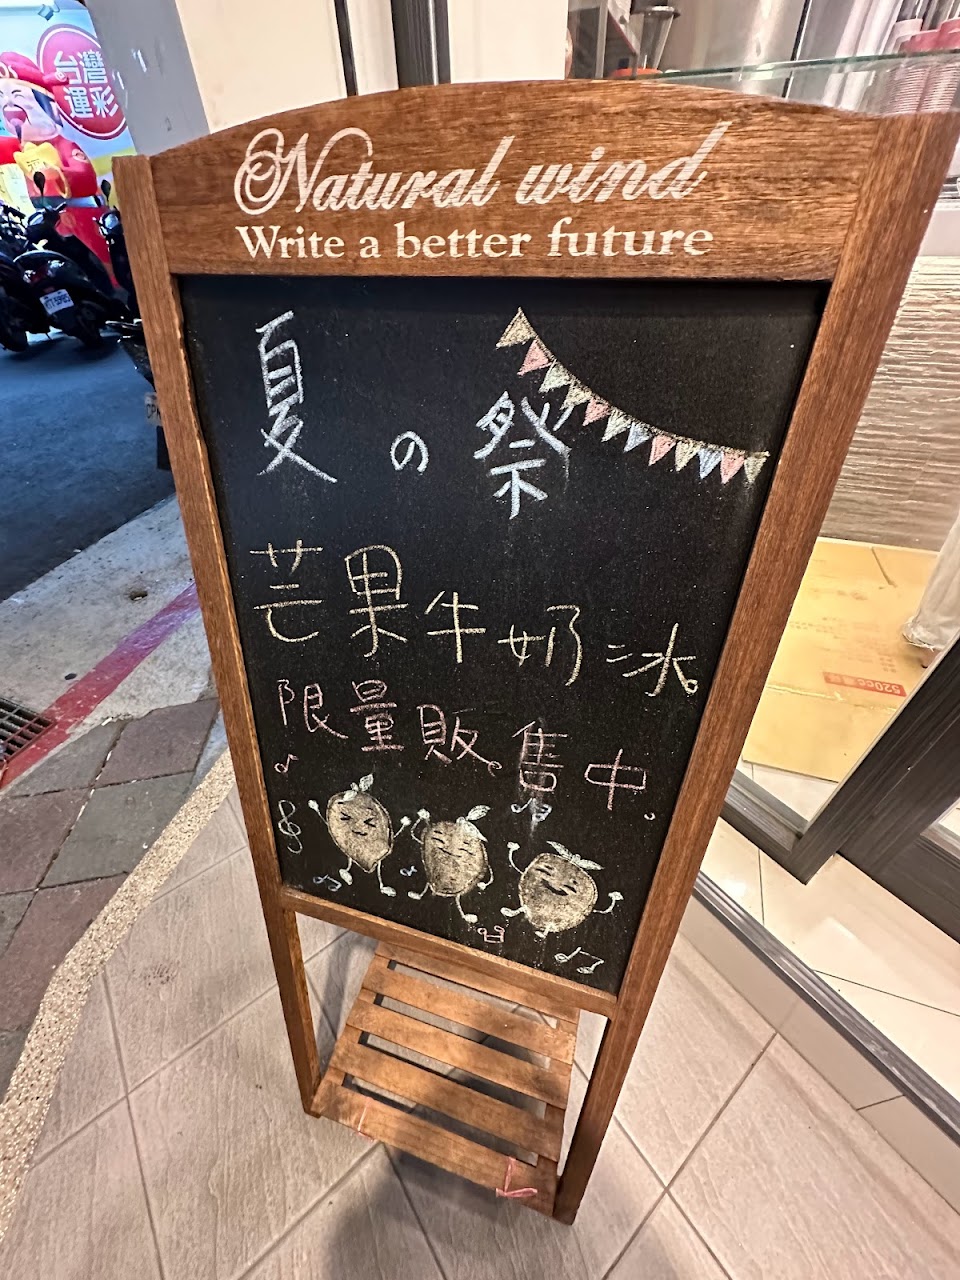 台灣
運彩
Natural wind
Write a better future
夏の祭
芒果牛奶冰。
限量販售中。
520cc